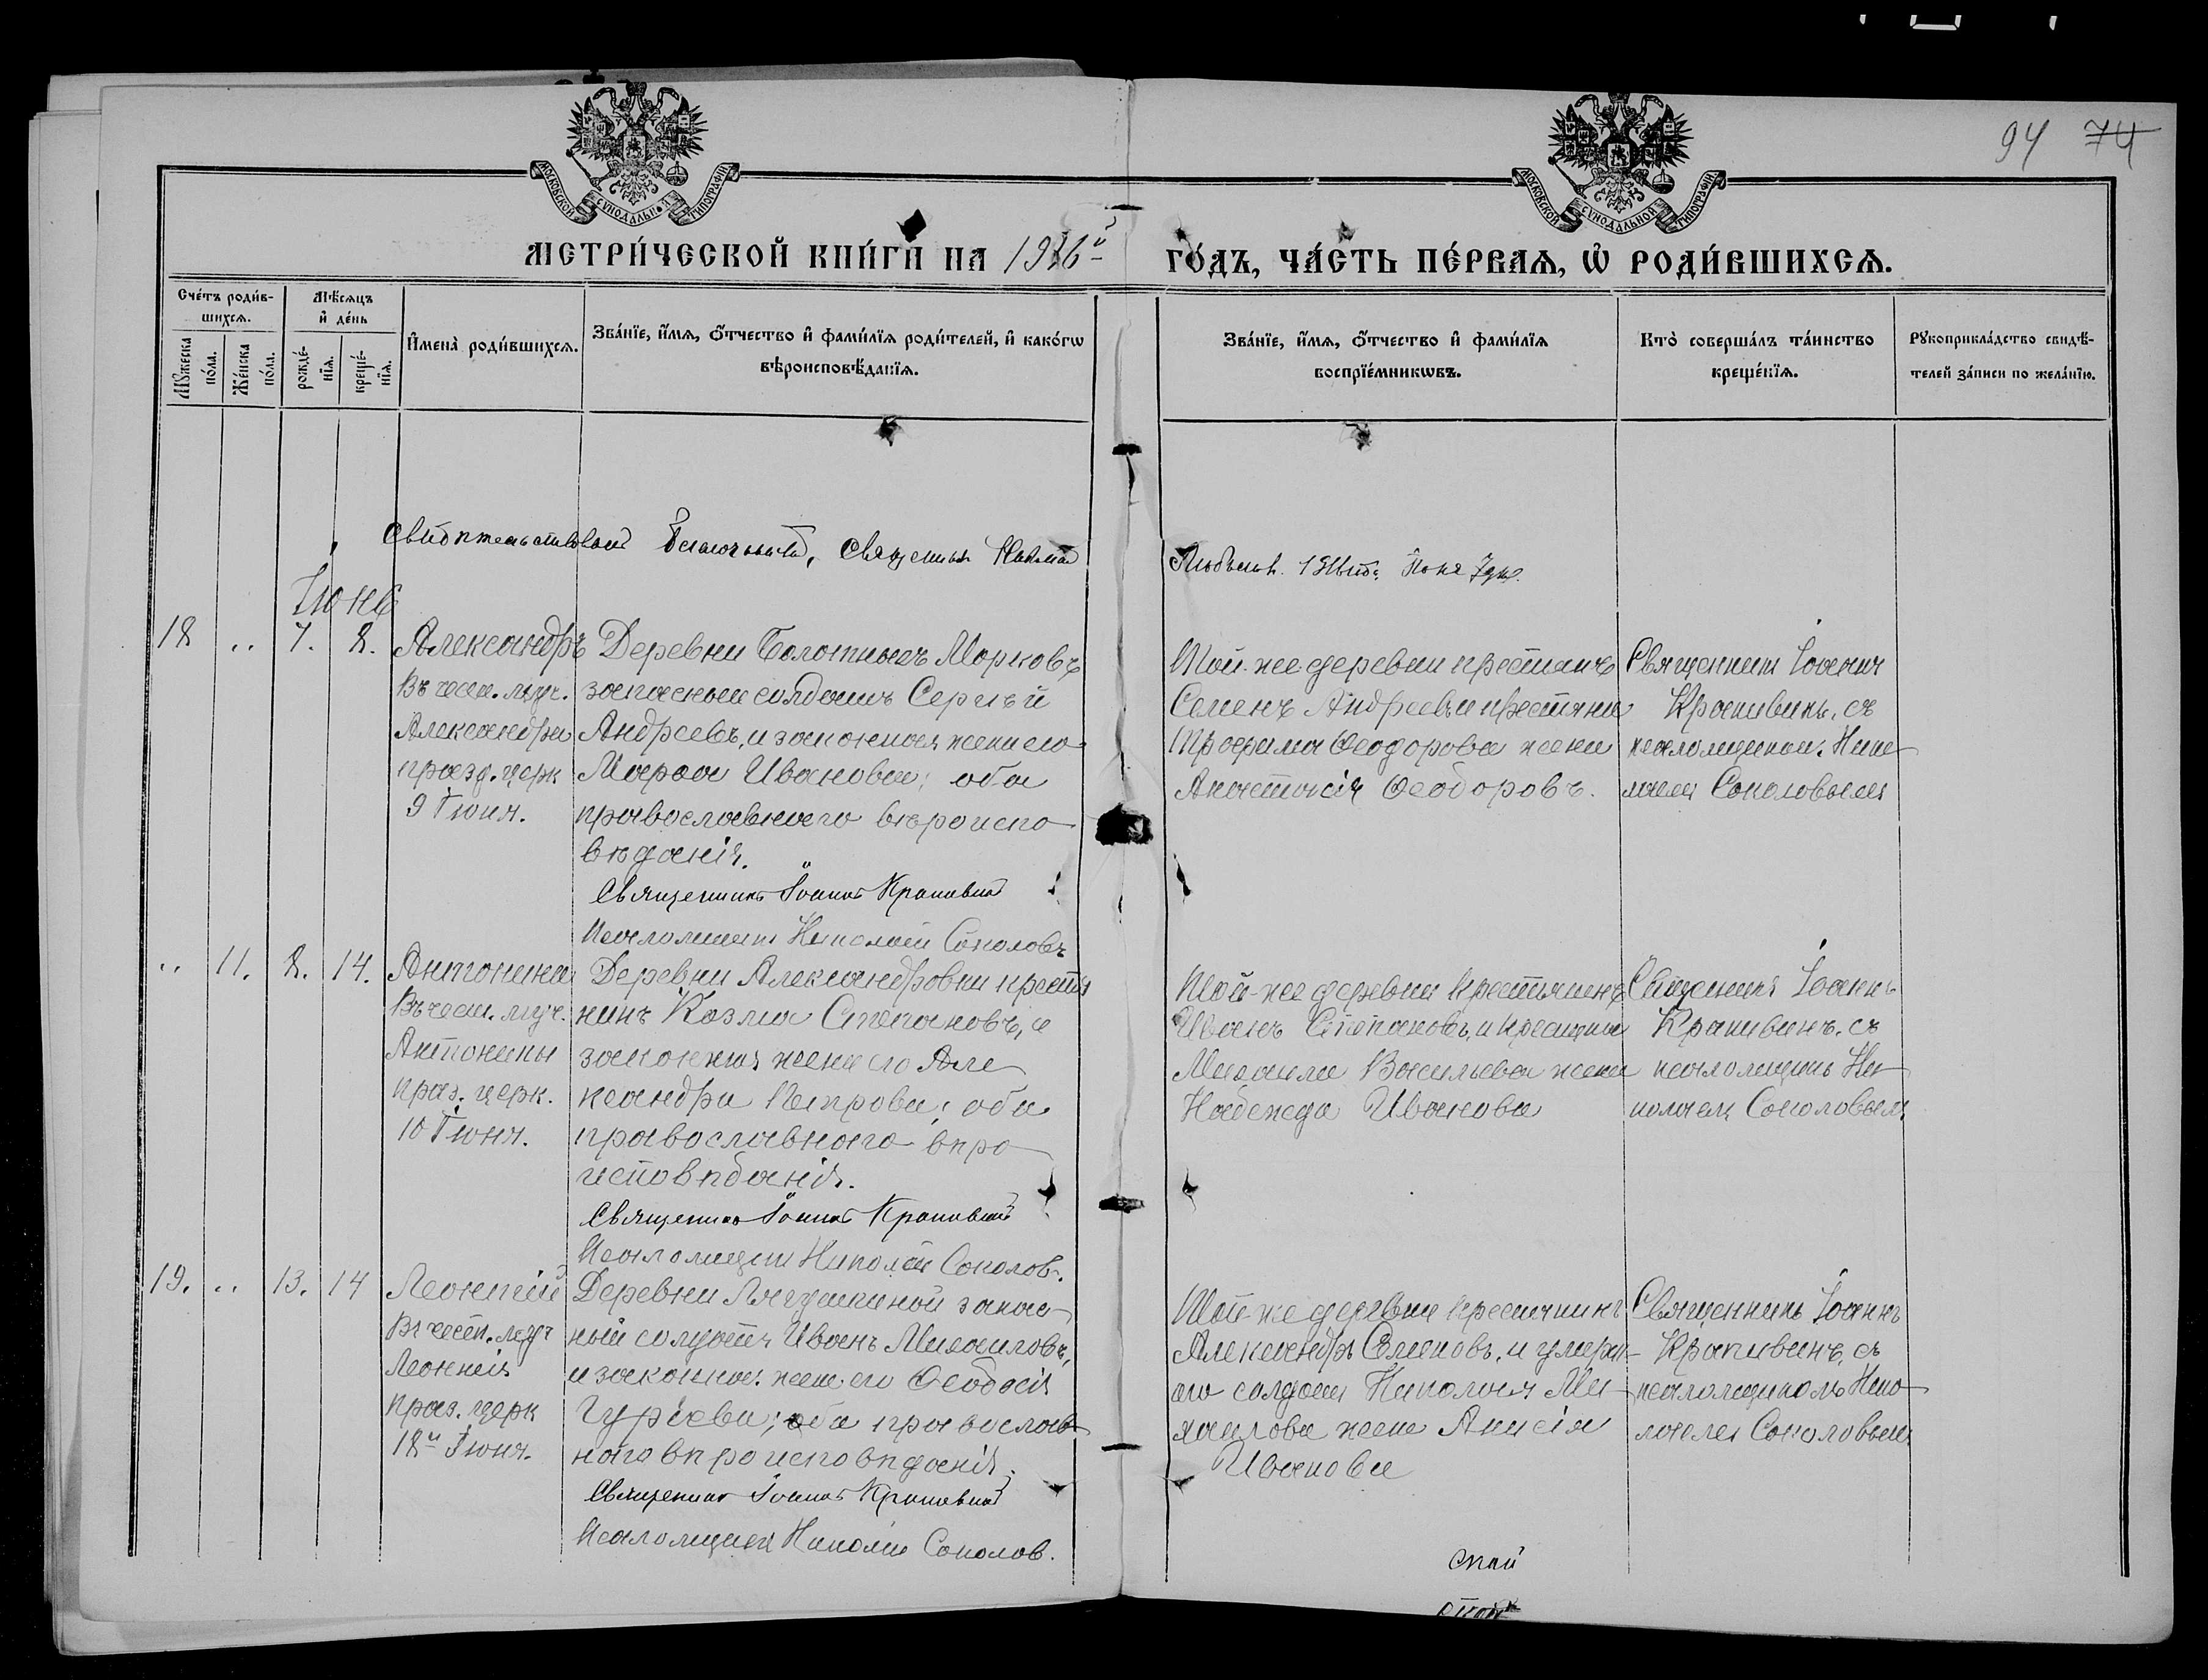 94 74
МОСКОВСКОЙ СѴНОДАЛЬНОЙ ТИПОГРАФІИ
МОСКОВСКОЙ СѴНОДАЛЬНОЙ ТИПОГРАФІИ
МЕТРИ́ЧЕСКОЙ КНИ́ГИ НА 1916й ГО́ДЪ, ЧА́СТЬ ПЕ́РВАЯ, Ѡ РОДИ́ВШИХСЯ.
Сче́тъ роди́в-
шихся.
Мѣ́сяцъ
и де́нь
Му́жеска
по́ла.
Же́нска
по́ла.
рожде́-
нїя.
креще́-
нїя.
Имена̀ роди́вшихся.
Зва́нїе, и́мя, о́тчество и фами́лїя роди́телей, и како́гѡ
вѣроисповѣ́данїя.
Зва́нїе, и́мя, о́тчество и фами́лїя
воспрїе́мникѡвъ.
Кто̀ соверша́лъ та́инство
креще́нїя.
Рукоприкла́дство свидѣ́-
телей за́писи по жела́нїю.
Священникъ
Іюнь
18 .. 7. 8.
Александръ
Въ чест. муч.
Александра
празд. церк
9 Іюня.
Деревни Болотныхъ Морковъ
запасный солдатъ Сергѣй
Андреевъ, и законная жена его
Марѳа Иванова; оба
православнаго вѣроиспо-
вѣданія.
Священникъ Іоаннъ Крапивинъ
Псаломщикъ Николай Соколовъ
Той-же деревни крестьянинъ
Семенъ Андреевъ и крестьянина
Трофима Ѳеодорова жена
Анастасія Ѳеодоровъ.
Священникъ Іоаннъ
Крапивинъ, съ
псаломщикомъ Нико-
лаемъ Соколовымъ
.. 11. 8. 14.
Антонина
Въ чест. муч.
Антонины
праз. церк.
10 Іюня.
Деревни Александровки крестья
нинъ Козма Степановъ, и
законная жена его Але
ксандра Петрова; оба
православнаго вѣро
исповѣданія.
Священникъ Іоаннъ Крапивинъ
Псаломщикъ Николай Соколовъ.
Той-же деревни крестьянинъ
Иванъ Степановъ, и крестьянина
Михаила Васильева жена
Надежда Иванова
Священникъ Іоаннъ
Крапивинъ, съ
псаломщикомъ Ни-
колаемъ Соколовымъ
19. .. 13. 14
Леонтій
Въ чест. муч
Леонтія
праз. церк
18го Іюня.
Деревни Лягушкиной запас-
ный солдатъ Иванъ Михаиловъ,
и законная жена его Ѳеодосія
Гуріева; оба православ-
наго вѣроисповѣданія.
Священникъ Іоаннъ Крапивинъ
Псаломщикъ Николай Соколов.
Той-же деревни крестьянинъ
Александръ Семеновъ, и умерш-
аго солдата Николая Ми-
хаилова жена Анисія
Иванова
Священникъ Іоаннъ
Крапивинъ, съ
псаломщикомъ Нико-
лаемъ Соколовымъ